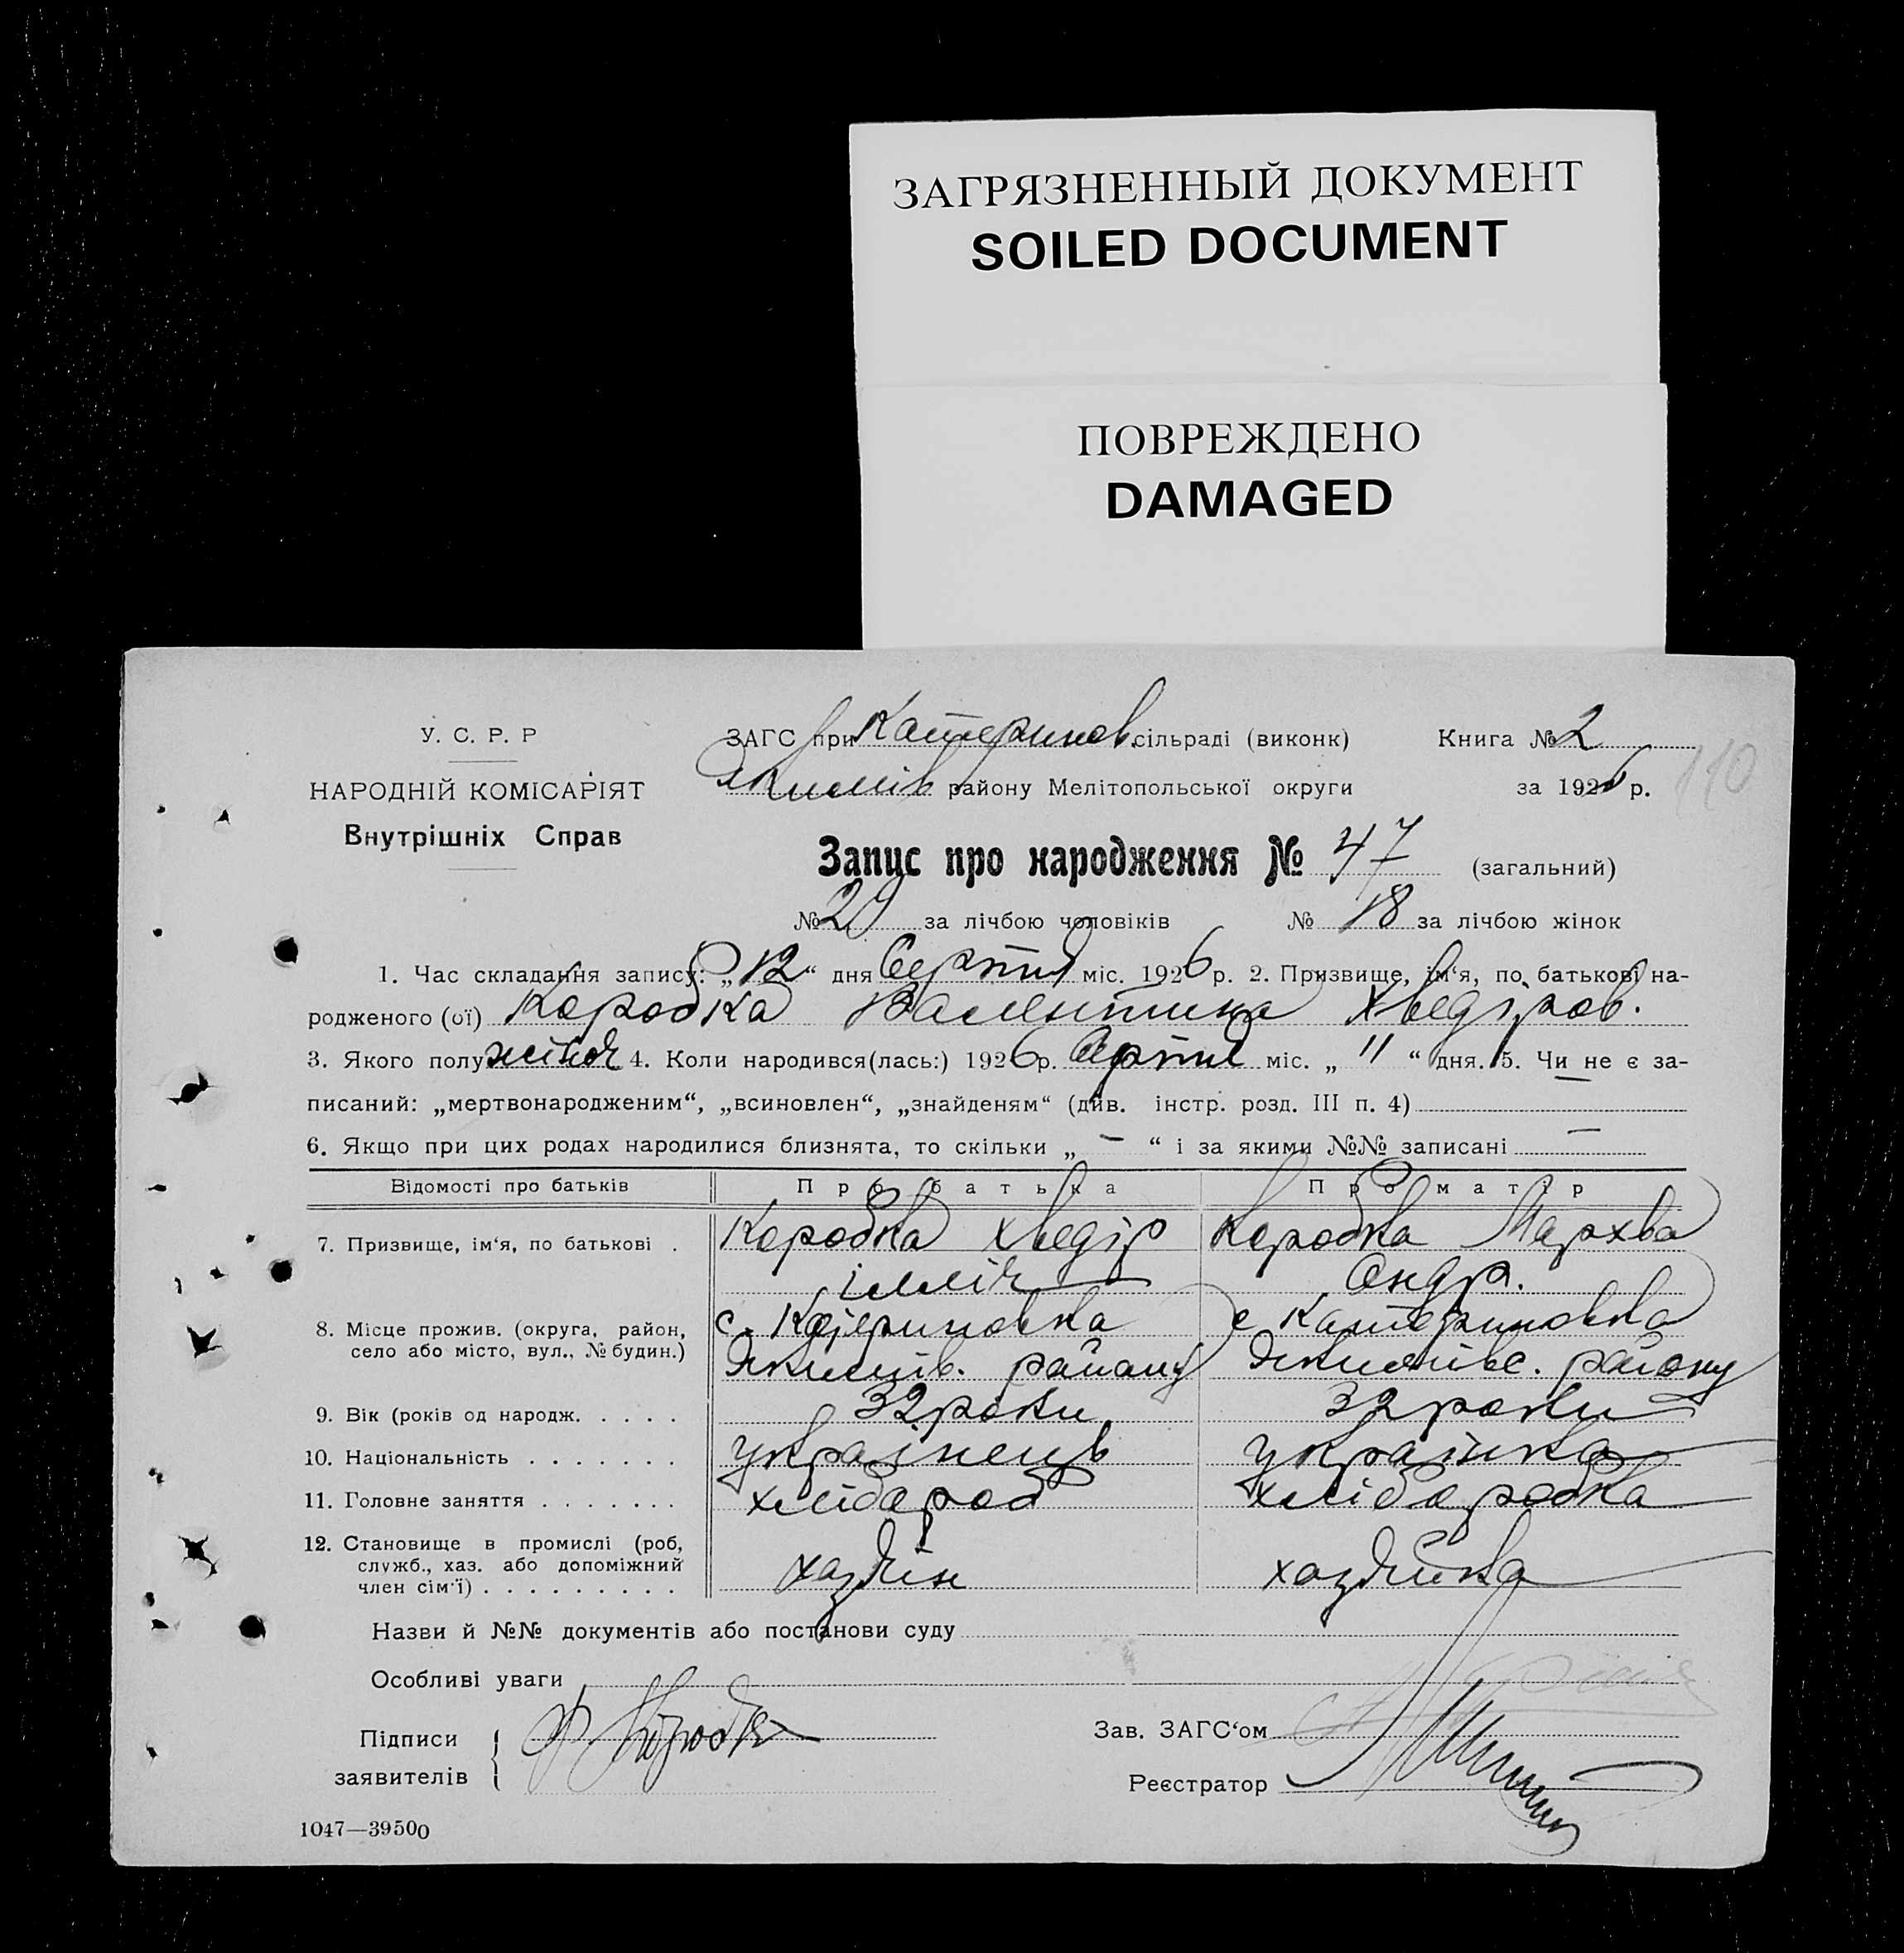 ЗАГРЯЗНЕННЫЙ ДОКУМЕНТ
SOILED DOCUMENT
ПОВРЕЖДЕНО
DAMAGED
У. С. Р. Р
НАРОДНІЙ КОМІСАРІЯТ
Внутрішніх Справ
ЗАГС при Катеринов. сільраді (виконк) Книга № 2
Якимів району Мелітопольської округи за 1926 р.
110
Запис про народження № 47 (загальний)
№ 29 за лічбою чоловіків № 18 за лічбою жінок
1. Час складання запису: „12“ дня Серпня міс. 1926 р. 2. Призвище, ім‘я, по батькові на-
родженого (ої) Коробка Валентина Хведіров.
3. Якого полу жіноч 4. Коли народився(лась:) 1926 р. Серпня міс. „11“ дня. 5. Чи не є за-
писаний: „мертвонародженим“, „всиновлен“, „знайденям“ (див. інстр. розд. III п. 4) —
6. Якщо при цих родах народилися близнята, то скільки „ — “ і за якими №№ записані —
Відомості про батьків Про батька Про матір
7. Призвище, ім‘я, по батькові . Коробка Хведір Коробка Мархва
Ілліч Ондр.
8. Місце прожив. (округа, район, село або місто, вул., № будин.) с. Катериновка с Катериновка
Якимів. району Якимівс. району
9. Вік (років од народж. . . . . 32 роки 32 роки
10. Національність . . . . . . . українець українка
11. Головне заняття . . . . . . . хлібороб хліборобка
12. Становище в промислі (роб,
служб., хаз. або допоміжний
член сім‘ї) . . . . . . . . . хазяїн хазяйка
Назви й №№ документів або постанови суду
Особливі уваги
Підписи Ф Коробка Зав. ЗАГС‘ом
заявителів Реєстратор
1047—39500